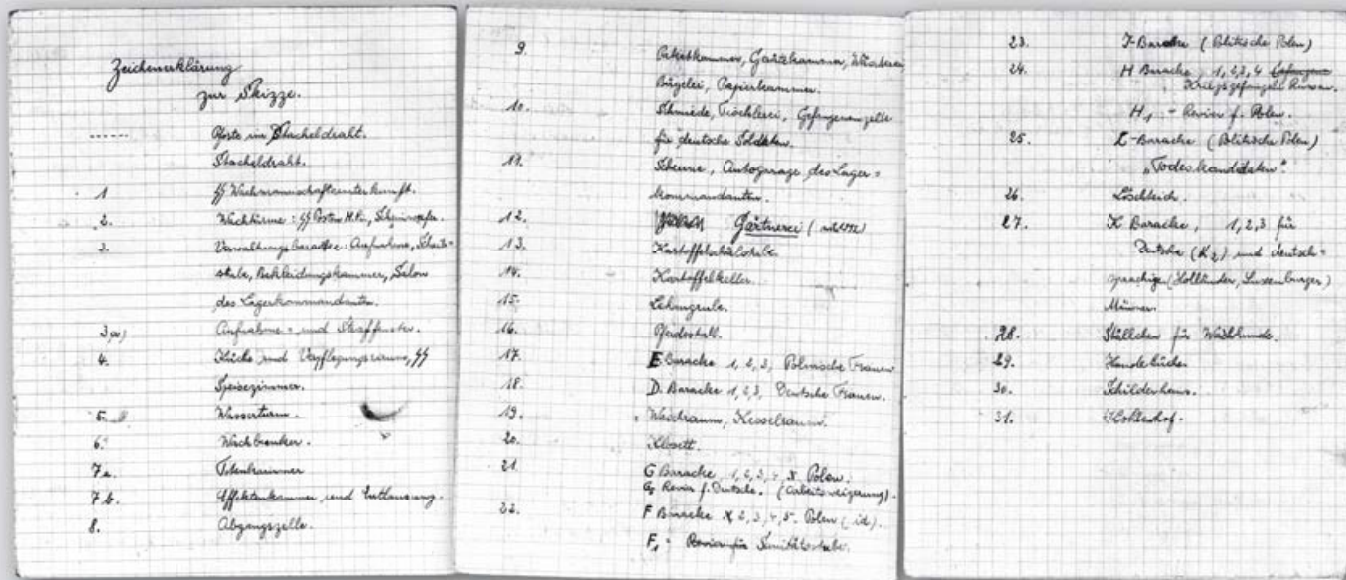 Zeichenerklärung
zur Skizze.
------ Pfoste im Stacheldraht.
Stacheldraht.
1 SS Wachmannschaftsunterkunft.
2. Wachtürme: SS Posten M.Pi,
3. Verwaltungsbaracke: Aufnahme, Schreib=
stube, Bekleidungskammer, Salon
des Lagerkommandanten.
3a) Aufnahme = und
4. Küche und Verpflegungsräume, SS
Speisezimmer.
5. Wasserturm.
6. Wachbunker.
7a. Totenkammer
7b. Effektenkammer und Entlausung.
8. Abgangszelle.
9. Paketkammer, Gerätekammer,
Bügelei, Papierkammer.
10. Schmiede, Tischlerei, Gefangenenzelle
für deutsche Soldaten.
11. Scheune, Autogarage des Lager=
kommandanten.
12. Gärtnerei
13. Kartoffelschälstube.
14. Kartoffelkeller.
15. Lehmgrube.
16. Pferdestall.
17. E Baracke 1, 2, 3, Polnische Frauen
18. D. Baracke 1, 2, 3, Deutsche Frauen.
19. Waschraum, Kesselraum.
20. Klosett.
21 G Baracke 1, 2, 3, 4 Polen.
Revier f. Deutsche. (Arbeitsverweigerung).
22. F Baracke 2, 3, 4, 5. Polen (id).
F1 = Revier für Sanitätsstube.
23. J-Baracke (Politische Polen)
24. H Baracke 1, 2, 3, 4 Gefangene
Kriegsgefangene Russen.
H1 - Revier f. Polen.
25. L-Baracke (Politische Polen)
"Todeskandidaten".
26. Löschteich.
27. K Baracke, 1, 2, 3 für
Deutsche (K2) und deutsch=
sprachige (Holländer, Luxemburger)
Männer.
28. Ställchen für Wachhunde.
29. Hundeküche.
30. Schilderhaus.
31. Kohlenhof.